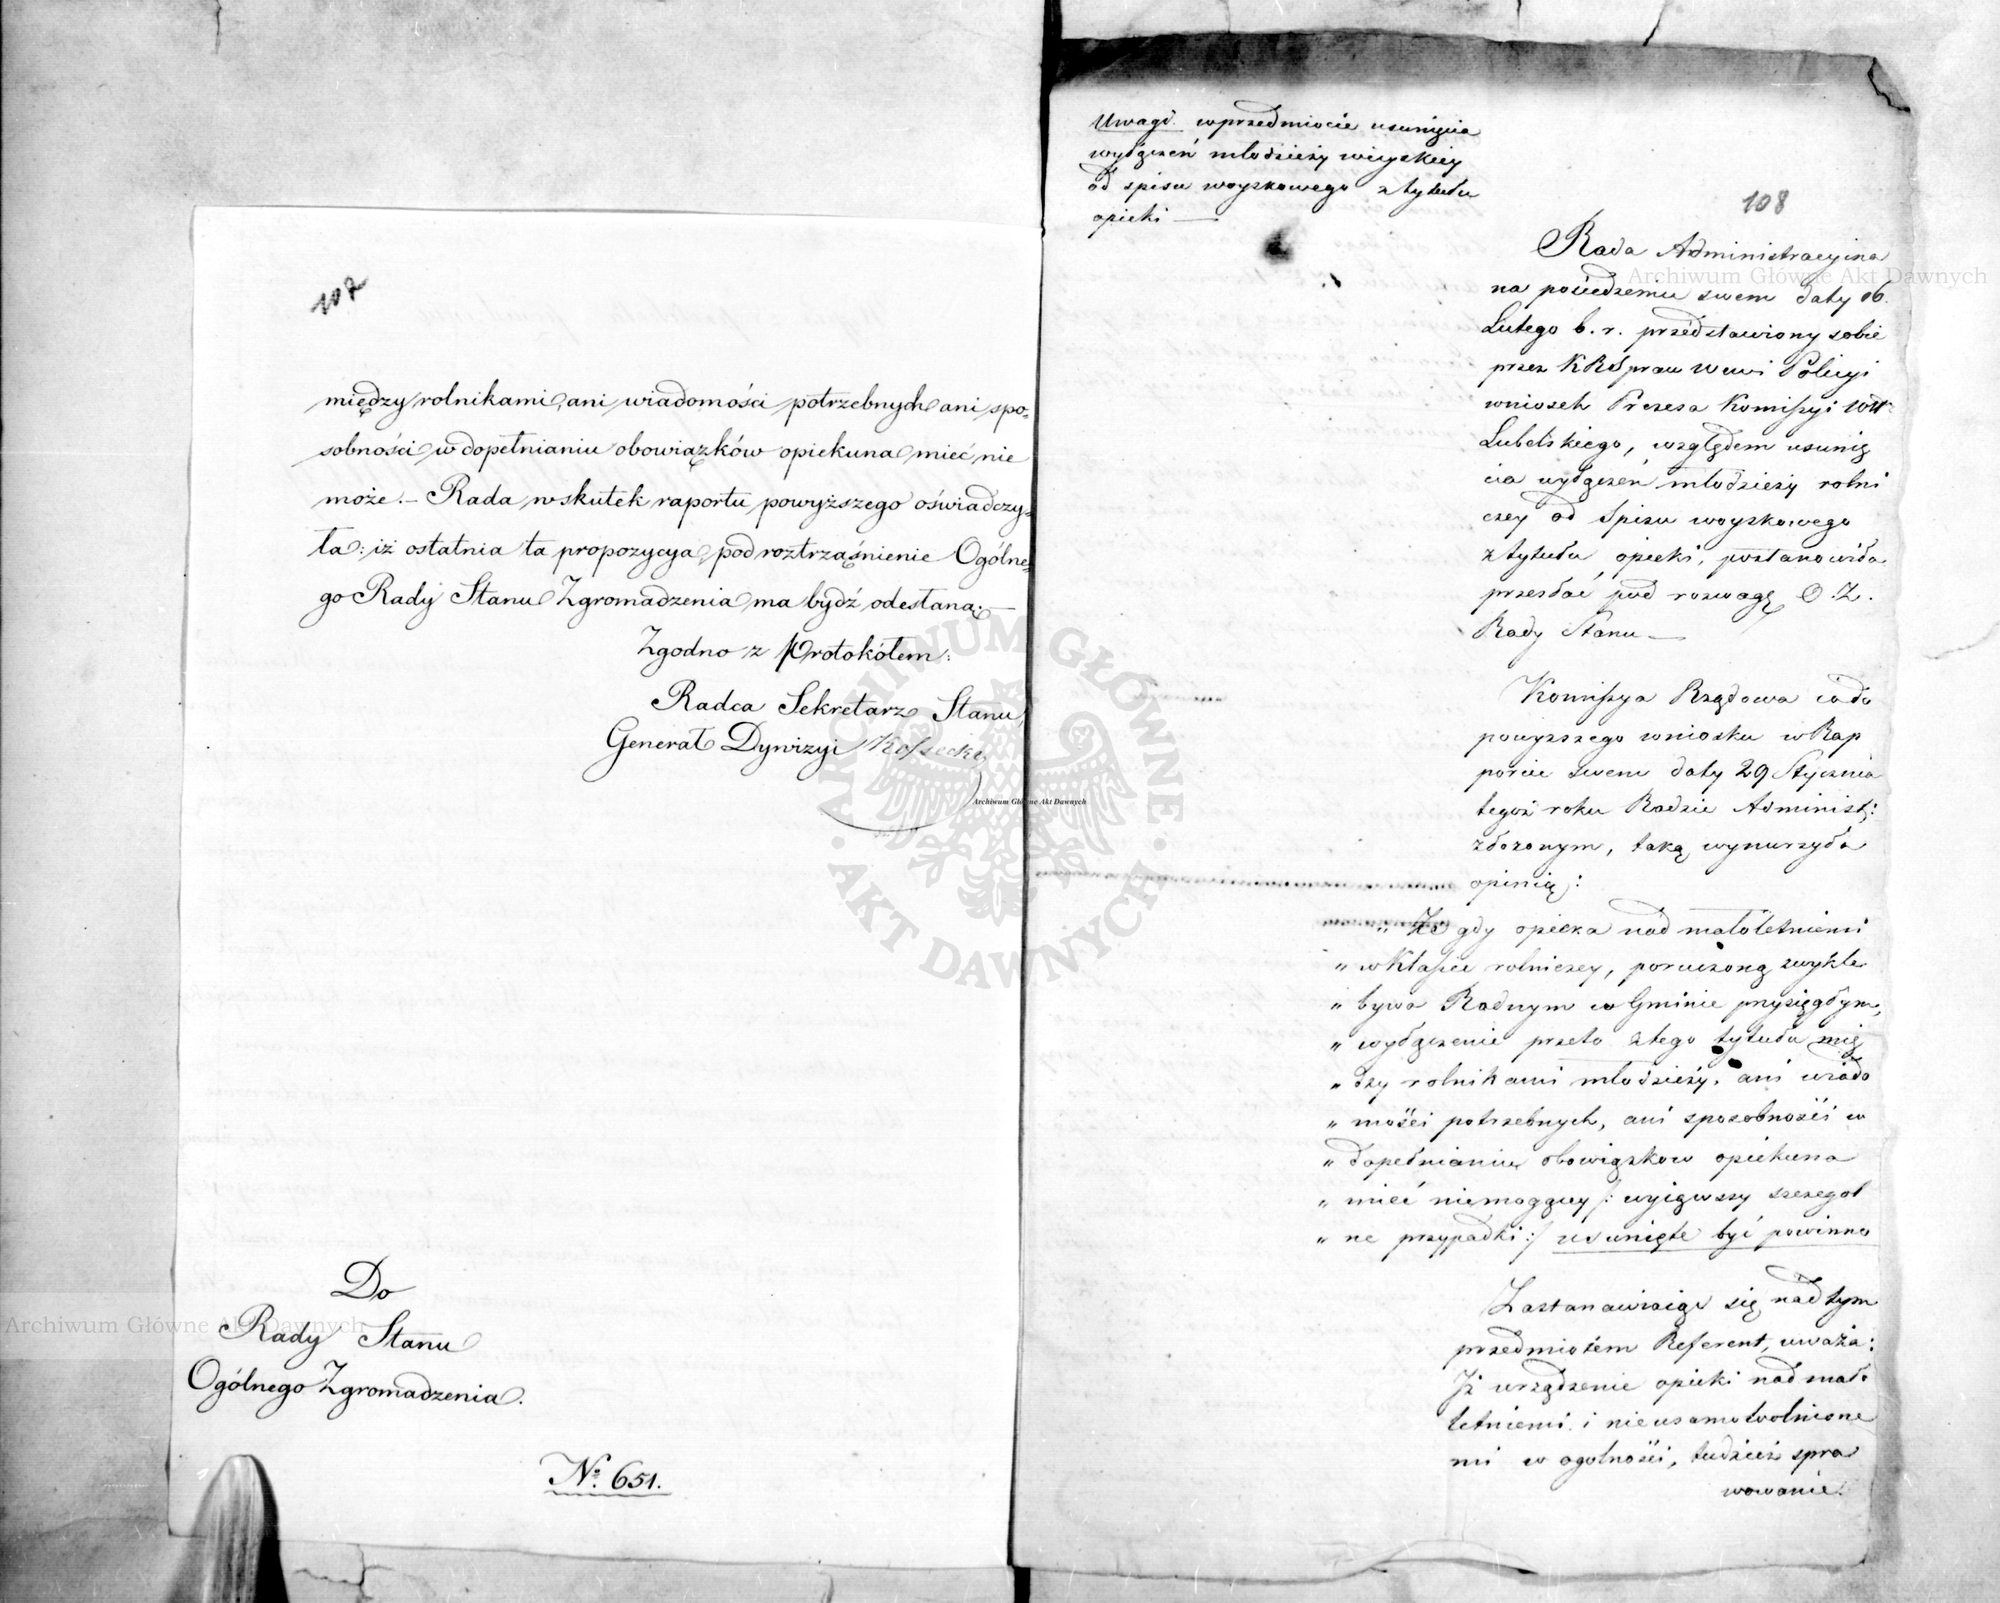 107
między rolnikami, ani wiadomości potrzebnych ani spo-
sobności w dopełnianiu obowiązków opiekuna mieć nie
może. – Rada wskutek raportu powyższego oświadczy-
ła: iż ostatnia ta propozycya pod roztrząśnienie Ogólne-
go Rady Stanu Zgromadzenia ma bydź odesłaną. –
Zgodno z Protokółem:
Radca Sekretarz Stanu,
Generał Dywizyi Kossecki
Do
Rady Stanu
Ogólnego Zgromadzenia.
No. 651.
108
Uwagi wprzedmiocie usunięcia
wyłączeń młodzieży wieyskiey
od spisu woyskowego z tytułu
opieki —
Rada Administracyina
na posiedzeniu swem daty 06.
Lutego b. r. przedstawiony sobie
przez KRSpraw Wewi Policyi
wniosek Prezesa Komissyi Wtt
Lubelskiego, względem usunię
cia wyłączeń młodzieży rolni
czey od Spisu woyskowego
z tytułu opieki, postanowiła
przesłać pod rozwagę O. Z.
Rady Stanu —
Komissya Rządowa co do
powyższego wniosku w Rap
porcie swem daty 29 Stycznia
tegoż roku Radzie Administ:
złożonym, taką wynurzyła
opinię:
„ Że gdy opieka nad małoletniemi
„ w Klassie rolniczey, poruczoną zwykle
„ bywa Radnym w Gminie przysięgłym,
„ wyłączenie przeto z tego tytułu mię
„ dzy rolnikami młodzieży, ani wiado
„ mości potrzebnych, ani sposobności w
„ dopełnianiu obowiązkow opiekuna
„ mieć niemogącey /: wyiąwszy szczegol
„ ne przypadki :/ usunięte być powinno
Zastanawiaiąc się nad tym
przedmiotem Referent, uważa:
Iż urządzenie opieki nad mało
letniemi i nieusamowolnione
mi w ogolności, tudzież spra
wowanie
Archiwum Główne Akt Dawnych
Archiwum Główne Akt Dawnych
Archiwum Główne Akt Dawnych
ARCHIWUM GŁÓWNE · AKT DAWNYCH ·